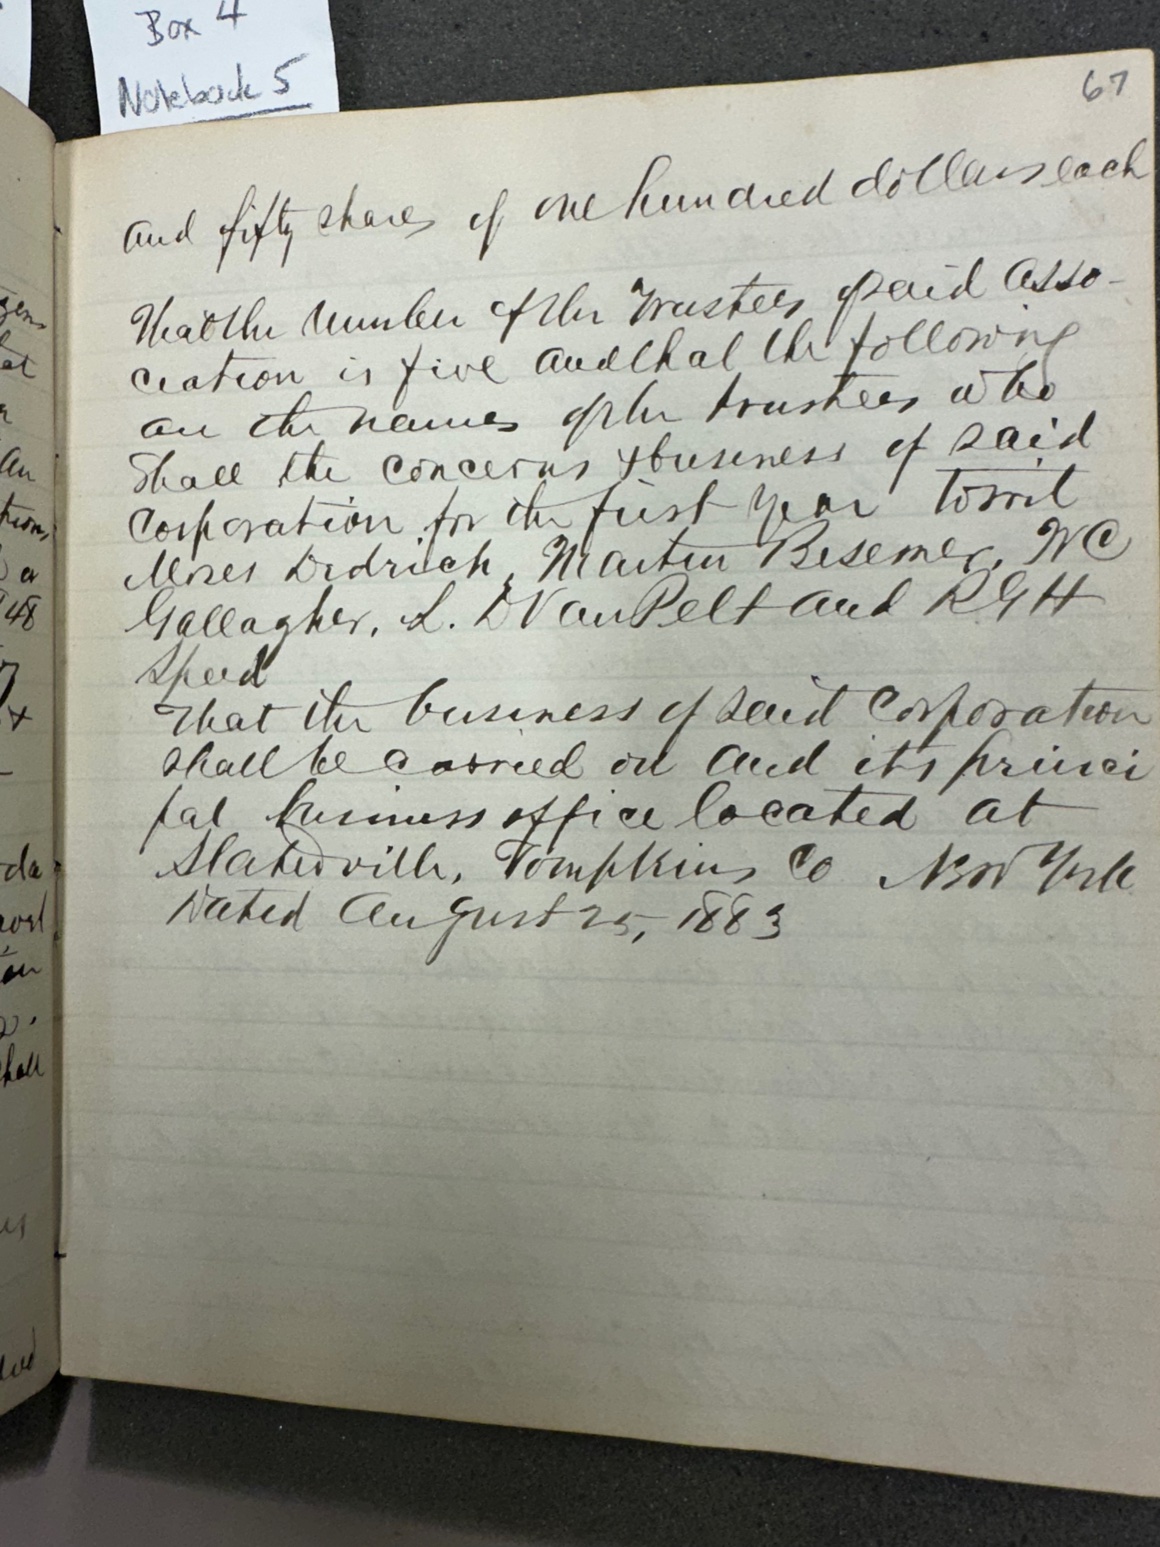 Box 4
Notebook 5
67
and fifty shares of one hundred dollars each
That the number of the Trustees of said Asso-
ciation is five and that the following
are the names of the trustees who
shall the concerns & business of said
Corporation for the first year towit
Moses Dedrich, Martin Besemer, W C
Gallagher, L. D Van Pelt and R G H
Speed
That the business of said Corporation
shall be carried on and its princi
pal business office located at
Slaterville, Tompkins Co New York
Dated August 25, 1883
at
an
48
da
shall